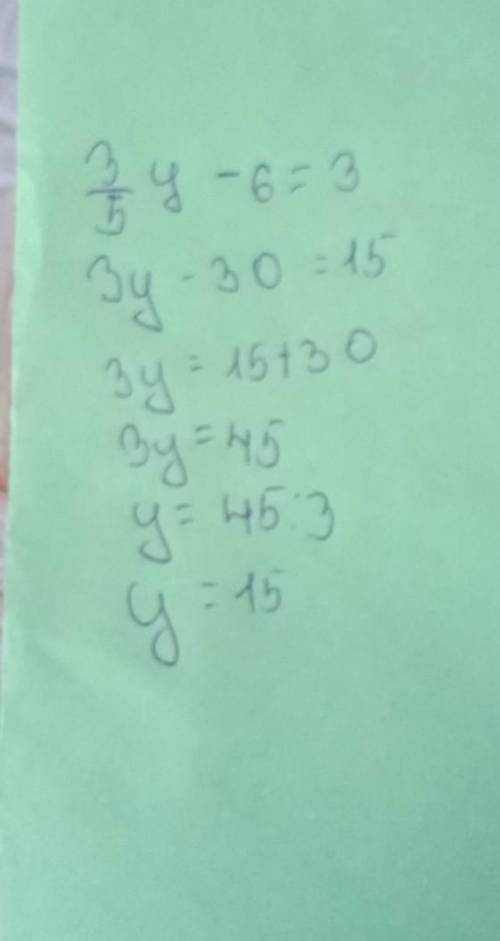 3/5 y - 6 = 3
3y - 30 = 15
3y = 15 + 30
3y = 45
y = 45 : 3
y = 15